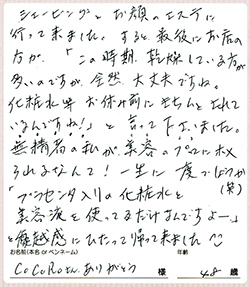 シェービングと お顔のエステに
行って来ました。すると、最後にお店の
方が、「この時期、乾燥している方が
多いのですが、全然、大丈夫ですね。
化粧水等 お休み前に きちんと されて
いるんですね!」と 言って下さいました。
無精者の私が、美容のプロにホメ
られるなんて!一生に一度でしょうか(笑)
「プラセンタ入りの化粧水と
美容液を使ってるだけなんですよー」
と優越感にひたって帰って来ました
お名前(本名 or ペンネーム) 年齢
CoCoRoさん、ありがとう 様 48 歳